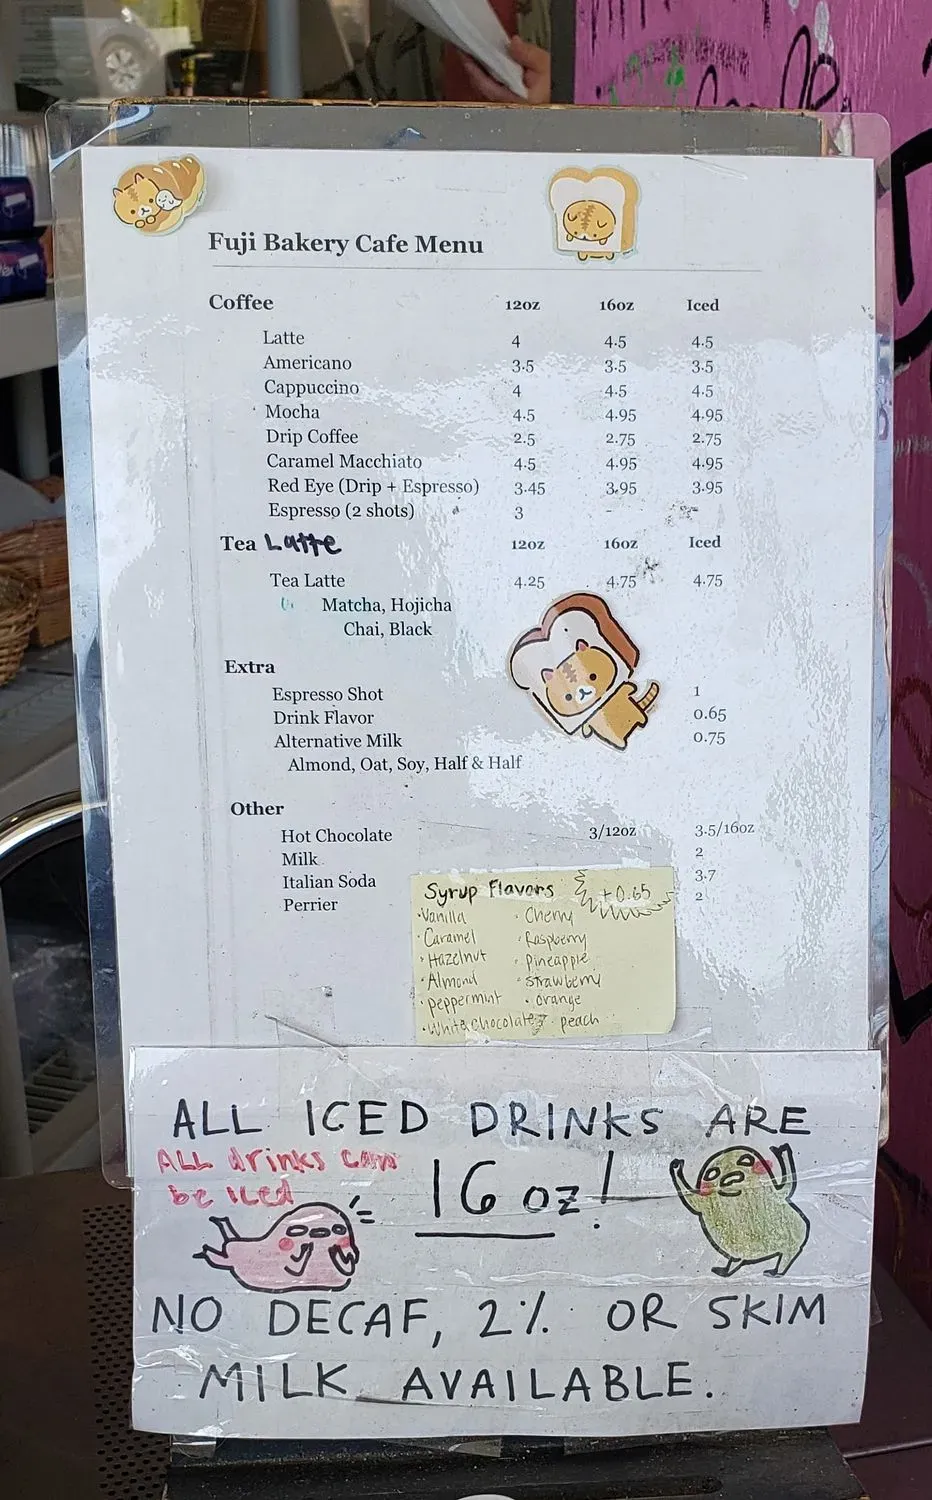 Fuji Bakery Cafe Menu
Coffee 12oz 16oz Iced
Latte 4 4.5 4.5
Americano 3.5 3.5 3.5
Cappuccino 4 4.5 4.5
Mocha 4.5 4.95 4.95
Drip Coffee 2.5 2.75 2.75
Caramel Macchiato 4.5 4.95 4.95
Red Eye (Drip + Espresso) 3.45 3.95 3.95
Espresso (2 shots) 3
Tea Latte 12oz 16oz Iced
Tea Latte 4.25 4.75 4.75
Matcha, Hojicha
Chai, Black
Extra
Espresso Shot 1
Drink Flavor 0.65
Alternative Milk 0.75
Almond, Oat, Soy, Half & Half
Other
Hot Chocolate 3/12oz 3.5/16oz
Milk 2
Italian Soda 3.7
Perrier 2
Syrup Flavors +0.65
·Vanilla · Cherry
·Caramel · Raspberry
·Hazelnut · Pineapple
·Almond · strawberry
·peppermint · orange
·White chocolate · peach
ALL ICED DRINKS ARE
16 oz!
ALL drinks can
be iced
NO DECAF, 2% OR SKIM
MILK AVAILABLE.